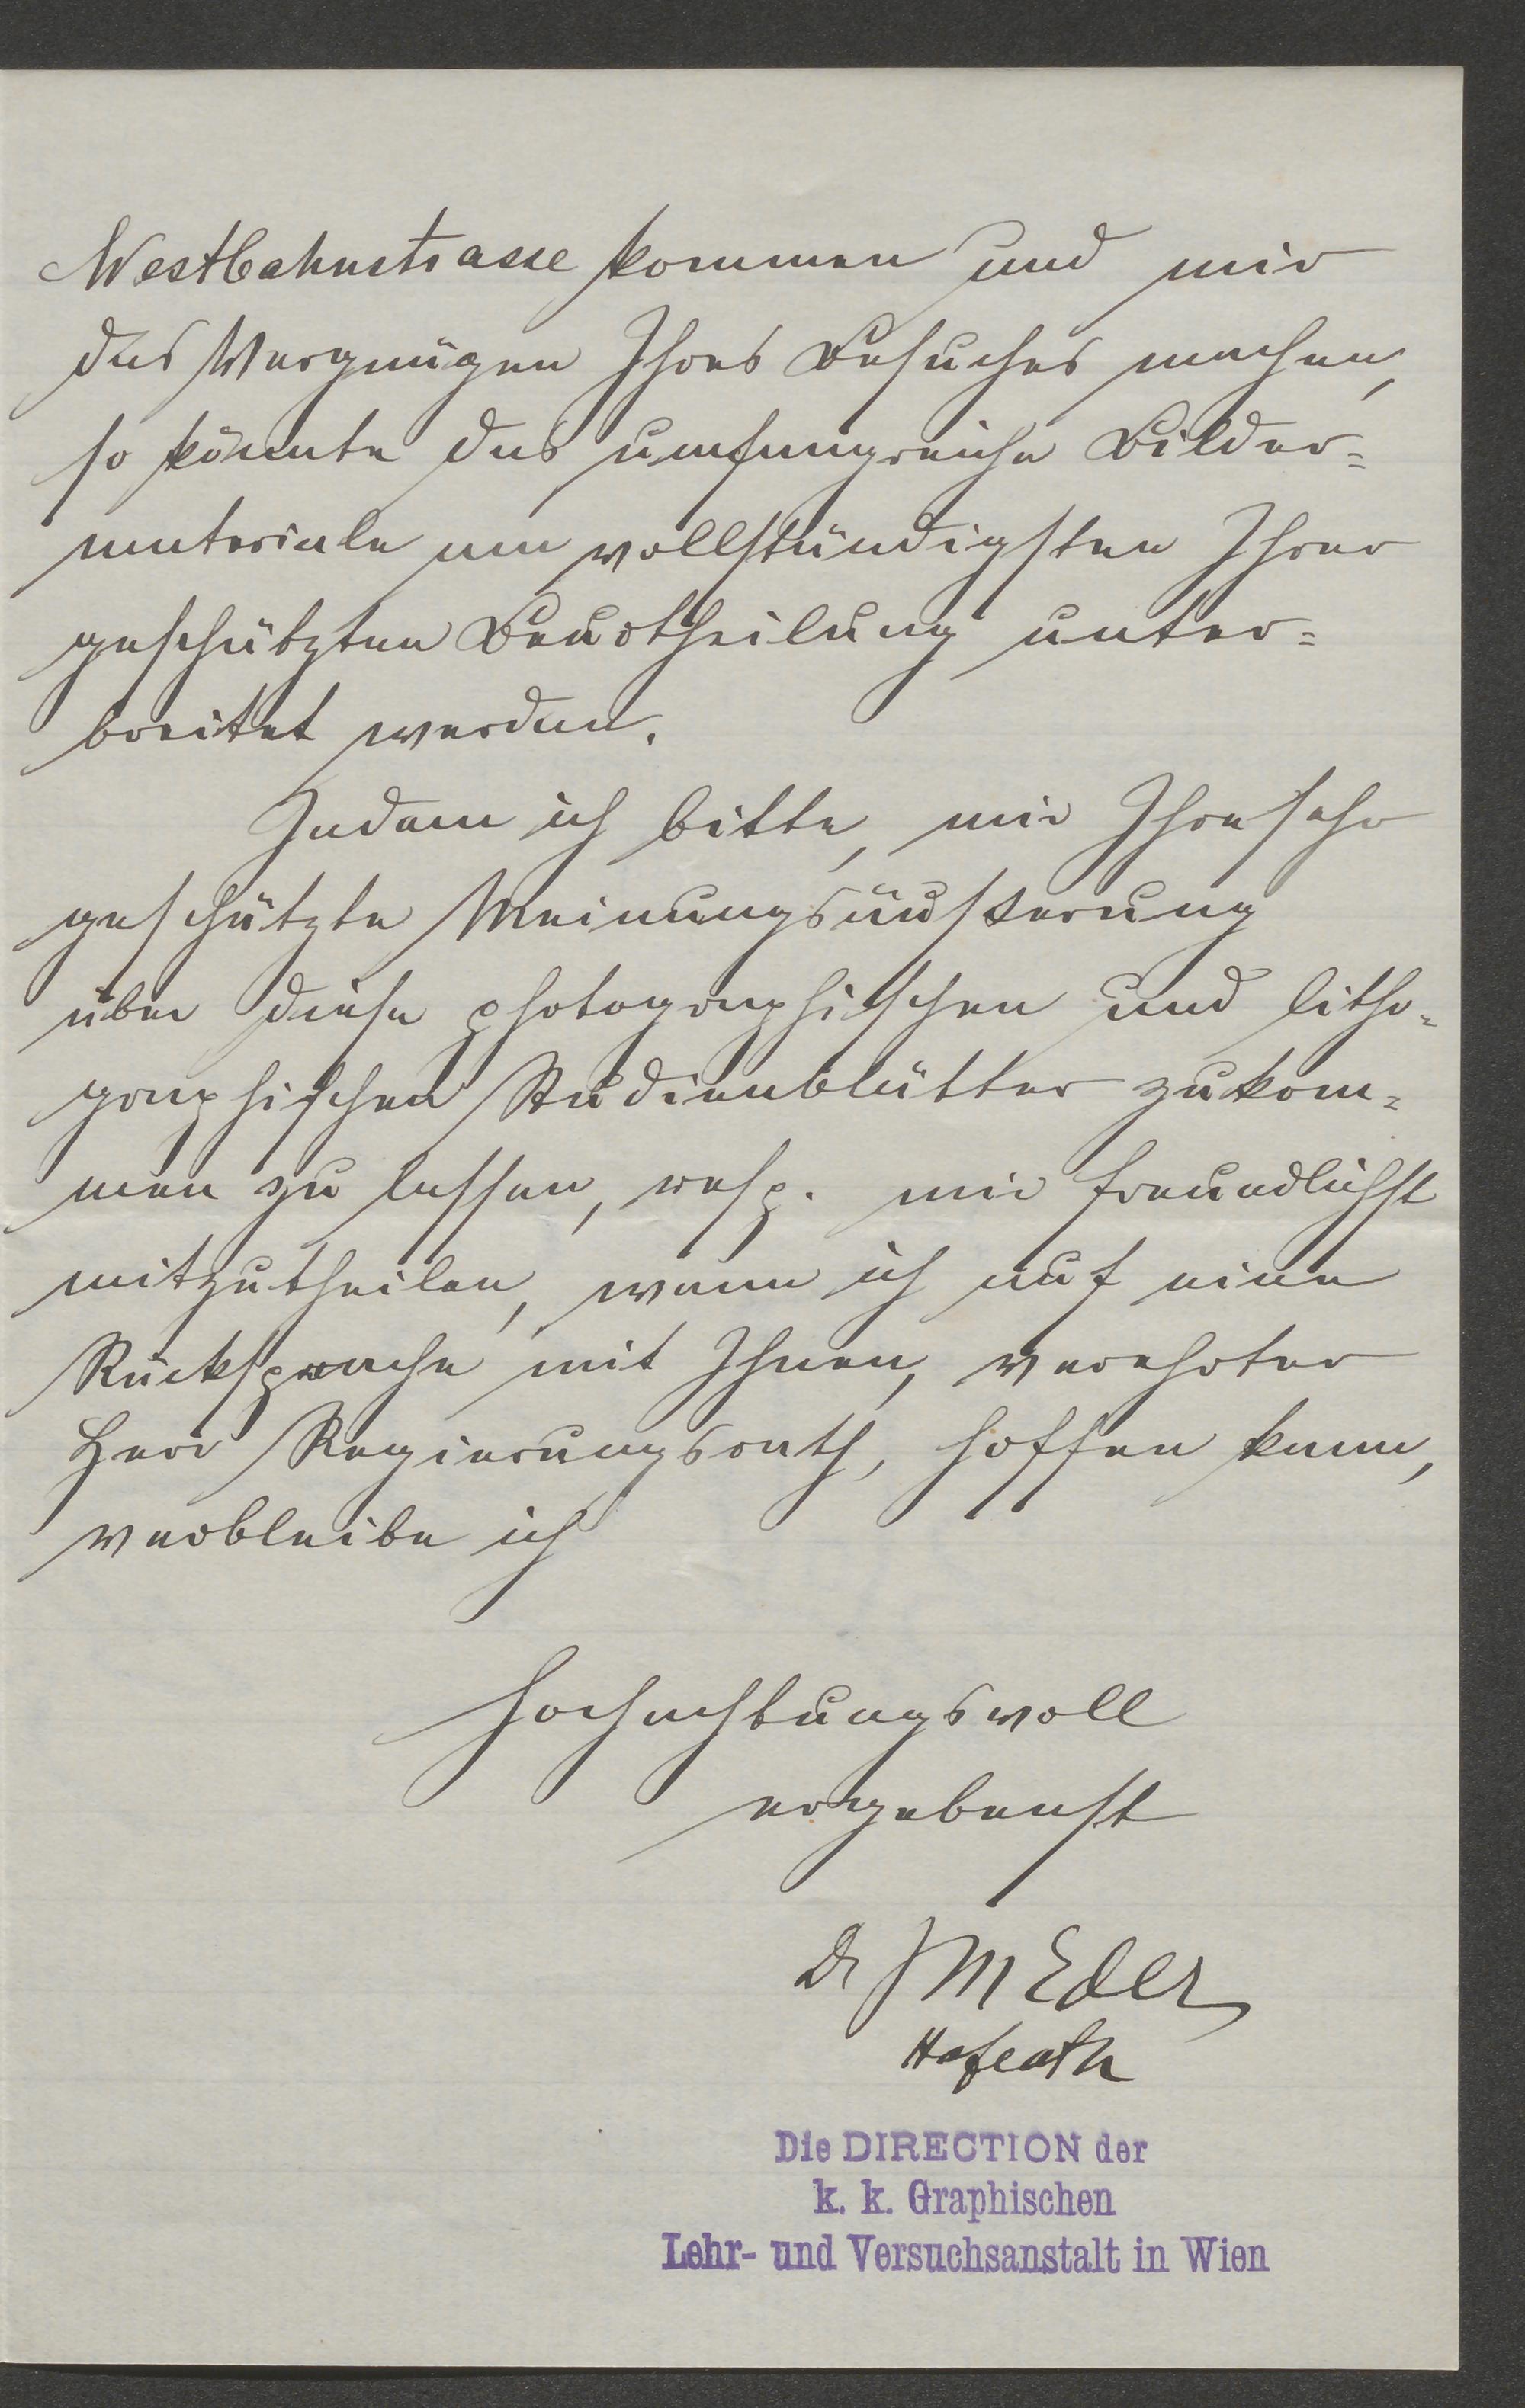 Westbahnstrasse kommen und mir
das Vergnügen Ihres Besuches machen,
so könnte das umfangreiche Bilder=
materiale am vollständigsten Ihrer
geschätzten Beurtheilung unter=
breitet werden.
Indem ich bitte, mir Ihre sehr
geschätzte Meinungsäusserung
über diese photographischen und litho=
graphischen Studienblätter zukom=
men zu lassen, resp. mir freundlichst
mitzutheilen, wann ich auf eine
Rücksprache mit Ihnen, verehrter
Herr Regierungsrath, hoffen kann,
verbleibe ich
hochachtungsvoll
ergebenst
Dr JM Eder
Hofrath
Die DIRECTION der
k. k. Graphischen
Lehr- und Versuchsanstalt in Wien